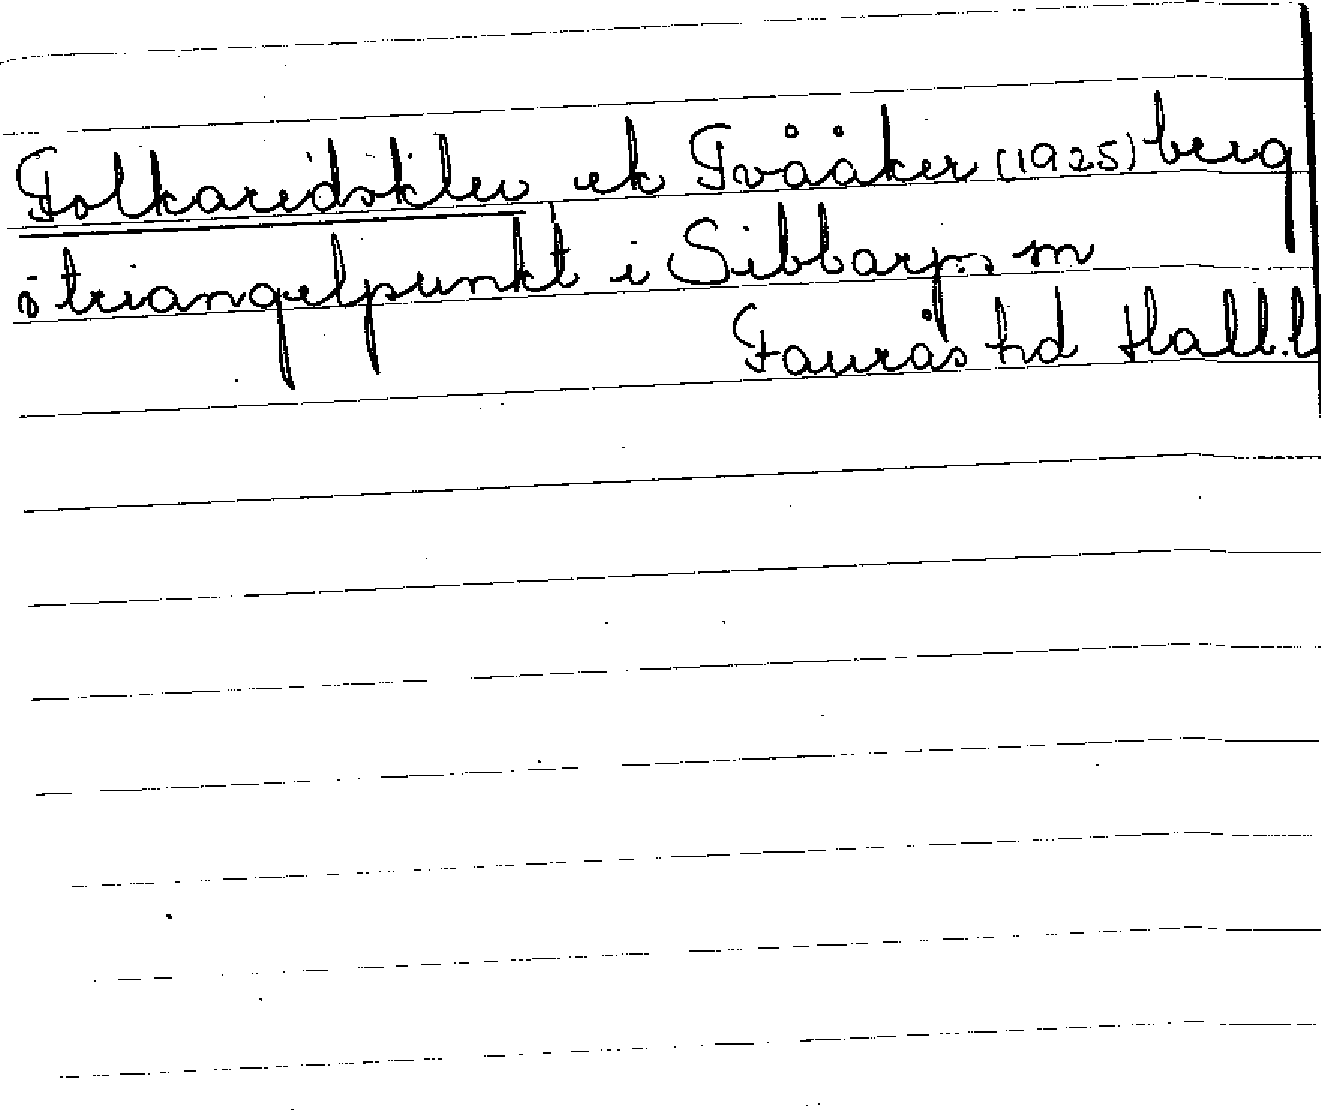 Folkaredsklev ek Tvååker (1925) berg
ö triangelpunkt i Sibbarps sn
Faurås hd Hall.l